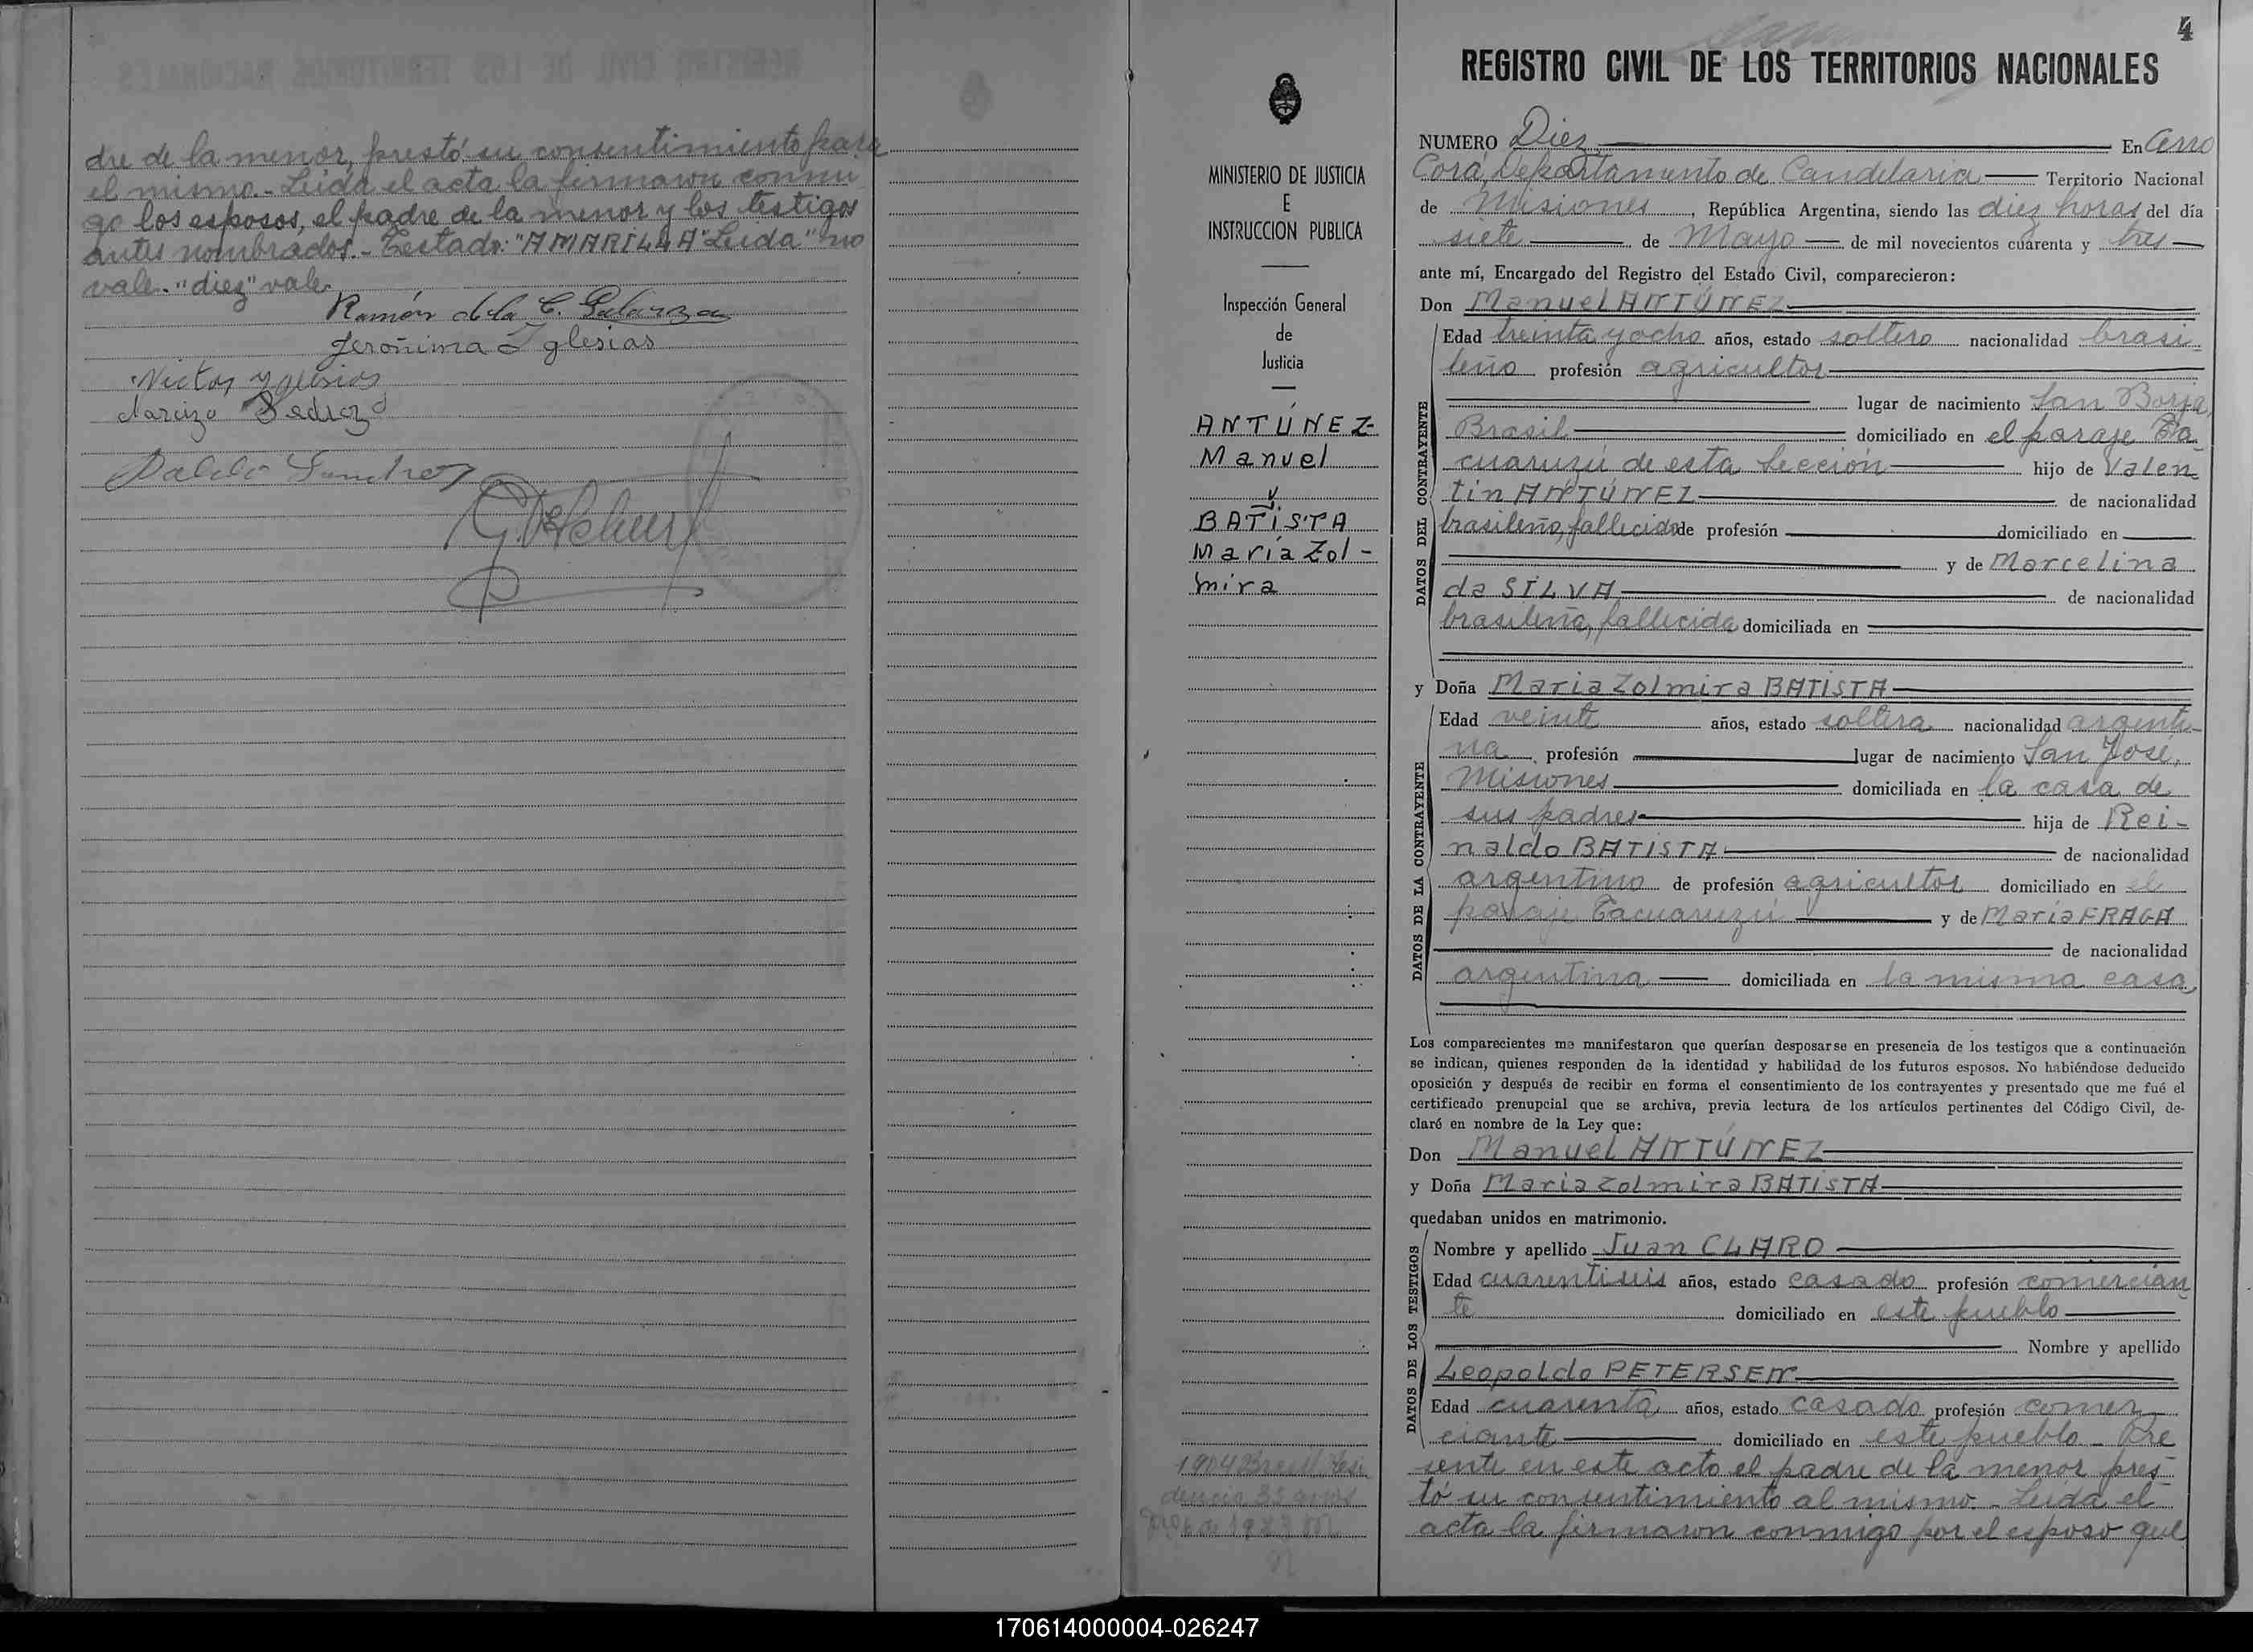 dre de la menor, prestó su consentimiento para
el mismo.- Leida el acta la firmaron conmi
go los esposos, el padre de la menor y los testigos
antes nombrados.- Testado: "AMARILLA" "Leida" no
vale. "diez" vale.
Ramón de la C.
Jeroñima Yglesias
Victor Yglesias
Narcizo
Sanchez
4
REGISTRO CIVIL DE LOS TERRITORIOS NACIONALES
MINISTERIO DE JUSTICIA
E
INSTRUCCION PUBLICA
Inspección General
de
Justicia
ANTÚNEZ
Manuel
y
BATISTA
María Zol-
mira
1904 Brasil
NUMERO Diez En Cerro
Corá, Departamento de Candelaria Territorio Nacional
de Misiones, República Argentina, siendo las diez horas del día
siete de Mayo de mil novecientos cuarenta y tres
ante mí, Encargado del Registro del Estado Civil, comparecieron:
Don Manuel ANTÚNEZ
DATOS DEL CONTRAYENTE
Edad treinta y ocho años, estado soltero nacionalidad brasi-
leño profesión agricultor
lugar de nacimiento San Borja,
Brasil domiciliado en el paraje Ta
cuaruzú de esta Sección hijo de Valen
tin ANTÚNEZ de nacionalidad
brasileño, fallecido de profesión domiciliado en
y de Marcelina
da SILVA de nacionalidad
brasileña, fallecida domiciliada en
y Doña Maria Zolmira BATISTA
DATOS DE LA CONTRAYENTE
Edad veinte años, estado soltera nacionalidad argenti-
na profesión lugar de nacimiento San José,
Misiones domiciliada en la casa de
sus padres hija de Rei-
naldo BATISTA de nacionalidad
argentino de profesión agricultor domiciliado en el
paraje Tacuaruzú y de María FRAGA
de nacionalidad
argentina domiciliada en la misma casa
Los comparecientes me manifestaron que querían desposarse en presencia de los testigos que a continuación
se indican, quienes responden de la identidad y habilidad de los futuros esposos. No habiéndose deducido
oposición y después de recibir en forma el consentimiento de los contrayentes y presentado que me fué el
certificado prenupcial que se archiva, previa lectura de los artículos pertinentes del Código Civil, de-
claré en nombre de la Ley que:
Don Manuel ANTÚNEZ
y Doña Maria Zolmira BATISTA
quedaban unidos en matrimonio.
DATOS DE LOS TESTIGOS
Nombre y apellido Juan CLARO
Edad cuarentiseis años, estado casado profesión comercian
te domiciliado en este pueblo
Nombre y apellido
Leopoldo PETERSEN
Edad cuarenta años, estado casado profesión comer
ciante domiciliado en este pueblo - Pre
sente en este acto el padre de la menor pres
tó su consentimiento al mismo - Leida el
acta la firmaron conmigo por el esposo que
170614000004-026247